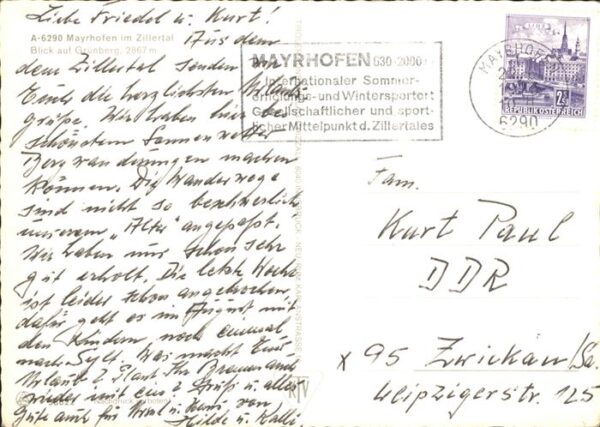 Liebe Friedel u. Kurt!
A-6290 Mayrhofen im Zillertal
Blick auf Grünberg, 2867 m
Aus dem
dem Zillertal senden wir
Euch die herzlichsten Urlaubs-
grüße. Wir haben hier bei
schönstem Sonnenwetter
Bergwanderungen machen
können. Die Wanderwege
sind nicht so beschwerlich
unserem "Alter" angepaßt.
Wir haben uns schon sehr
gut erholt. Die letzte Woche
ist leider schon angebrochen,
dafür geht es im August mit
den Kindern noch einmal
nach Sylt. Was macht Euer
Urlaub? Plant Ihr
wieder mit ein? Grüß u. alles
Gute auch für u. von
Hilde u. Kalli
MAYRHOFEN 630-2000 m
Internationaler Sommer-
erholungs- und Wintersportort
Gesellschaftlicher und sport-
licher Mittelpunkt d. Zillertales
MAYRHOFEN
6290
REPUBLIK ÖSTERREICH
Fam.
Kurt Paul
DDR
x 95 Zwickau/Sa.
Leipzigerstr. 125
RTV